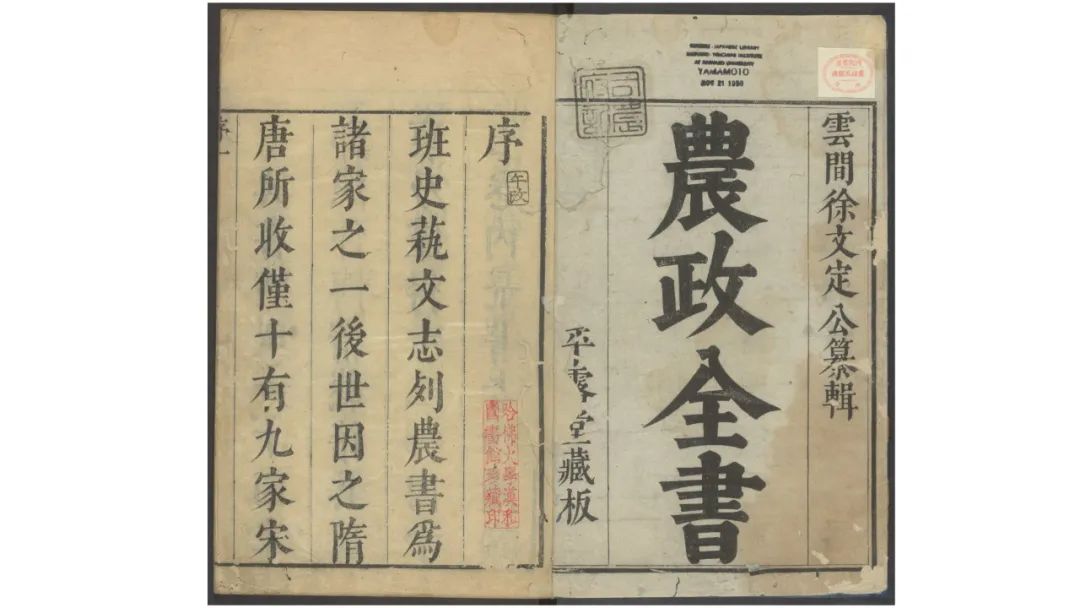 雲間徐文定公纂輯
農政全書
平露堂藏板
CHINESE-JAPANESE LIBRARY
HARVARD-YENCHING INSTITUTE
AT HARVARD UNIVERSITY
YAMAMOTO
NOV 21 1950
序
班史蓺文志列農書爲
諸家之一後世因之隋
唐所收僅十有九家宋
序一
哈佛大學漢和
圖書館珍藏印